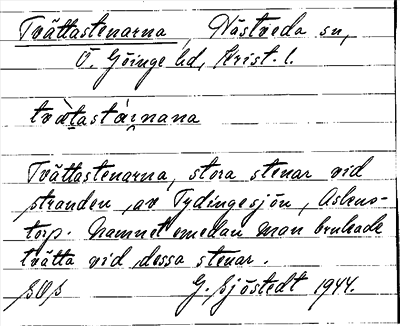 Tvättastenarna, Nästveda sn,
Ö. Göinge hd, Krist. l.
tvætastàɩnana
Tvättastenarna, stora stenar vid
stranden av Tydingesjön, Askens-
torp. Namnet emedan man brukade
tvätta vid dessa stenar.
G. Sjöstedt 1944.